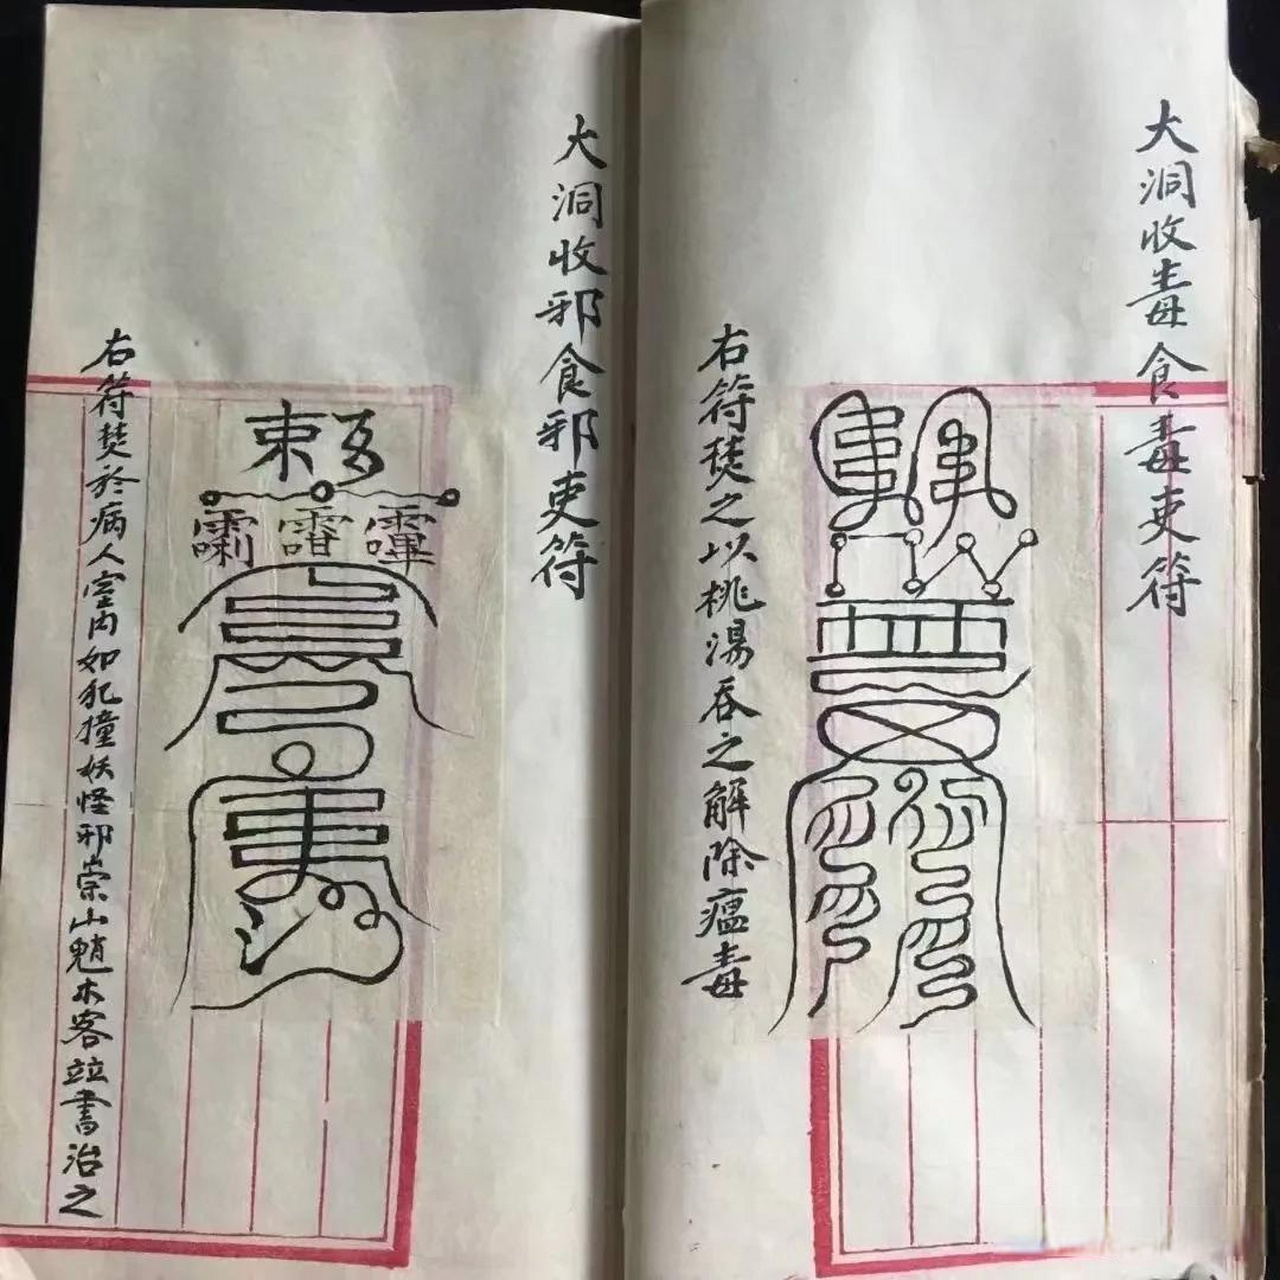 大洞收毒食毒吏符
右符焚之以桃湯吞之解除瘟毒
大洞收邪食邪吏符
右符焚於病人室内如犯撞妖怪邪祟山魈木客竝書治之